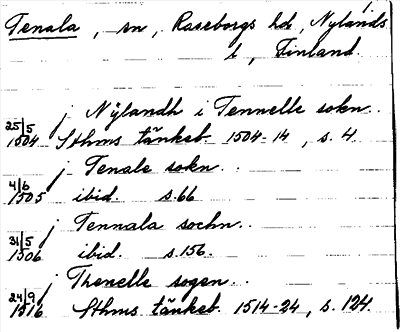 1.
Tenala, sn, Raseborgs hd, Nylands
l, Finland.
j Nÿlandh i Tennelle sokn..
25/5 1504 Sthms tänkeb. 1504-14, s. 4.
j Tenale sokn..
4/6 1505 ibid. s. 66
j Tennala sochn..
31/5 1506 ibid. s. 156.
j Thenelle sogen..
24/9 1516 Sthms tänkeb. 1514-24, s. 124.